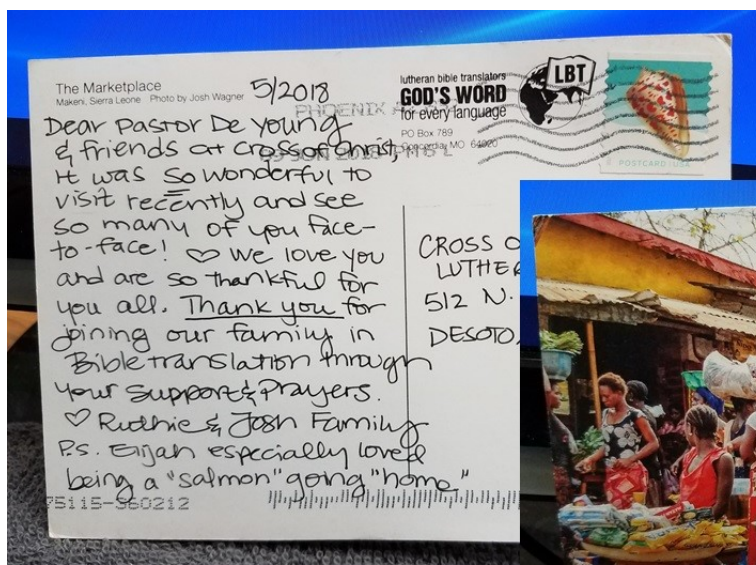 The Marketplace
Makeni, Sierra Leone Photo by Josh Wagner
5/2018
lutheran bible translators
GOD'S WORD
for every language
PO Box 789
Concordia, MO 64020
LBT
PHOENIX
JUN 2018 PM
POSTCARD USA
Dear Pastor De Young
& friends at Cross of Christ,
It was so wonderful to
visit recently and see
so many of you face-
to-face! ♡ We love you
and are so thankful for
you all. Thank you for
joining our family in
Bible translation through
your support & Prayers.
♡ Ruthie & Josh Family
P.s. Elijah especially loved
being a "salmon" going "home"
CROSS O
LUTHE
512 N.
DESOTO,
75115-360212